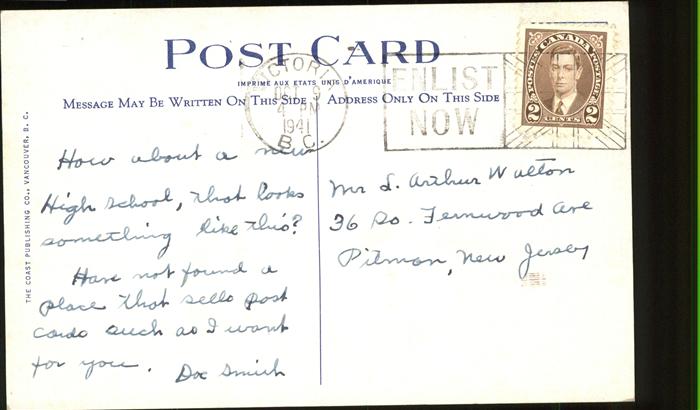 POST CARD
IMPRIME AUX ETATS UNIS D'AMERIQUE
MESSAGE MAY BE WRITTEN ON THIS SIDE
ADDRESS ONLY ON THIS SIDE
VICTORIA
OCT 9
4 PM
1941
B.C.
ENLIST
NOW
POSTES CANADA POSTAGE
2 CENTS 2
THE COAST PUBLISHING CO., VANCOUVER, B. C.
How about a new
High school, that looks
something like this?
Have not found a
place that sells post
cards such as I want
for you. Doc Smith
Mr L. Arthur Walton
36 So. Fernwood Ave
Pitman, New Jersey